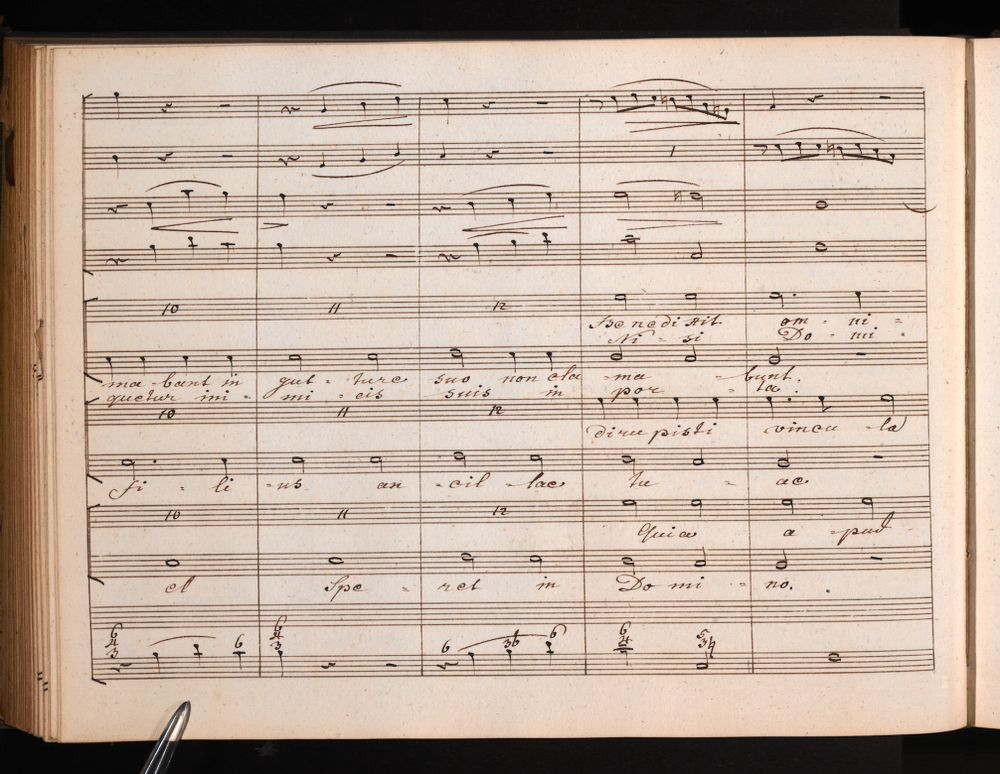 10 11 12
Benedixit om - ni =
Ni = si Do - mi -
ma - bant in gut - ture suo non cla - ma - bunt.
quetur ini = mi - cis suis in por - ta.
10 11 12
dirupisti vincu - la
fi - li - us an - cil - lae tu - ae
10 11 12
Quia a - pud
et Spe - ret in Do mi - no.
6 4 3 6 6 4 3 6 3b 6 6 4 5 4 3